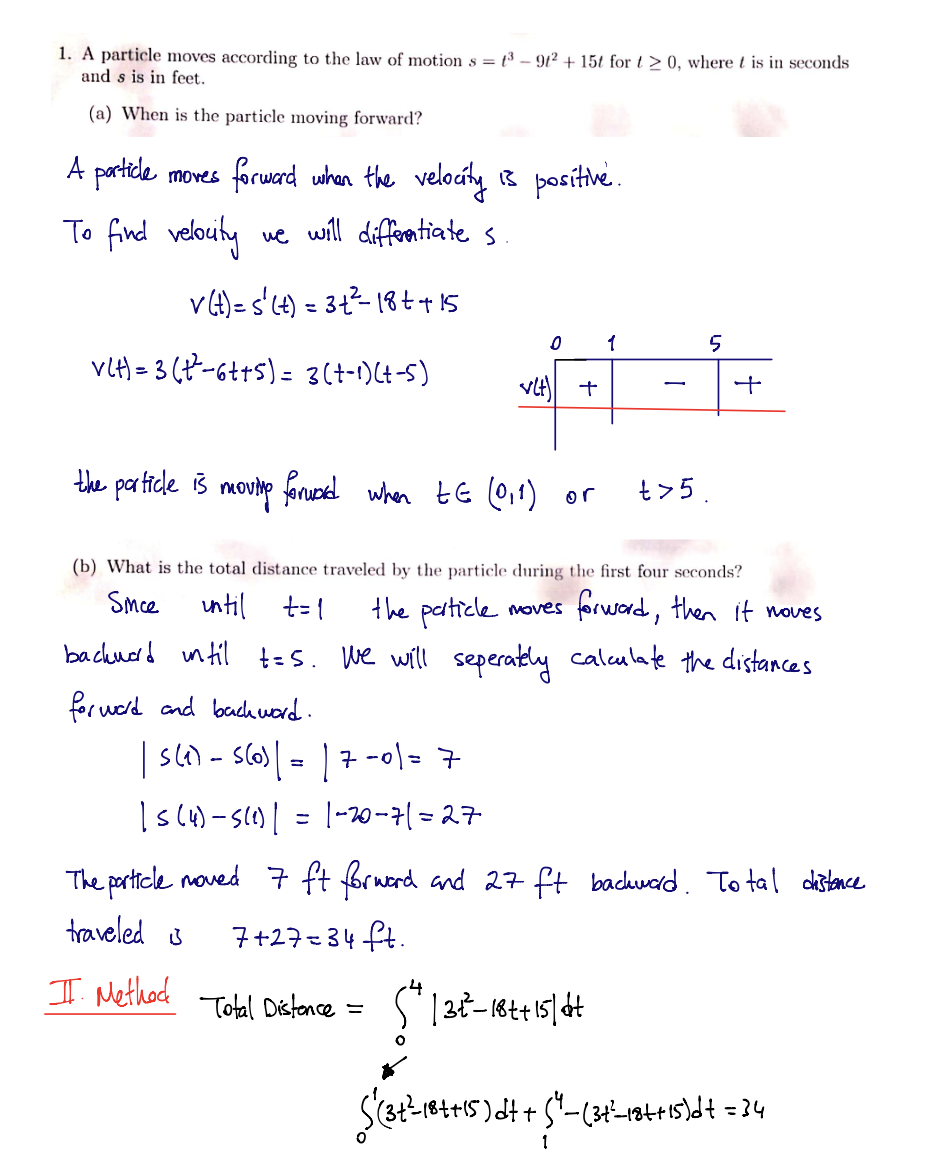 1. A particle moves according to the law of motion s = t³ − 9t² + 15t for t ≥ 0, where t is in seconds
and s is in feet.
(a) When is the particle moving forward?
A particle moves forward when the velocity is positive.
To find velocity we will differentiate s.
v(t) = s'(t) = 3t² − 18t + 15
0 1 5
v(t) = 3(t² − 6t + 5) = 3(t−1)(t−5)
v(t) + − +
the particle is moving forward when t ∈ (0,1) or t > 5.
(b) What is the total distance traveled by the particle during the first four seconds?
Since until t=1 the particle moves forward, then it moves
backward until t=5. We will seperately calculate the distances
forward and backward.
|s(1) − s(0)| = |7 − 0| = 7
|s(4) − s(1)| = |−20 − 7| = 27
The particle moved 7 ft forward and 27 ft backward. Total distance
traveled is 7+27 = 34 ft.
II. Method Total Distance = ∫₀⁴ |3t² − 18t + 15| dt
∫₀¹ (3t² − 18t + 15) dt + ∫₁⁴ −(3t² − 18t + 15) dt = 34